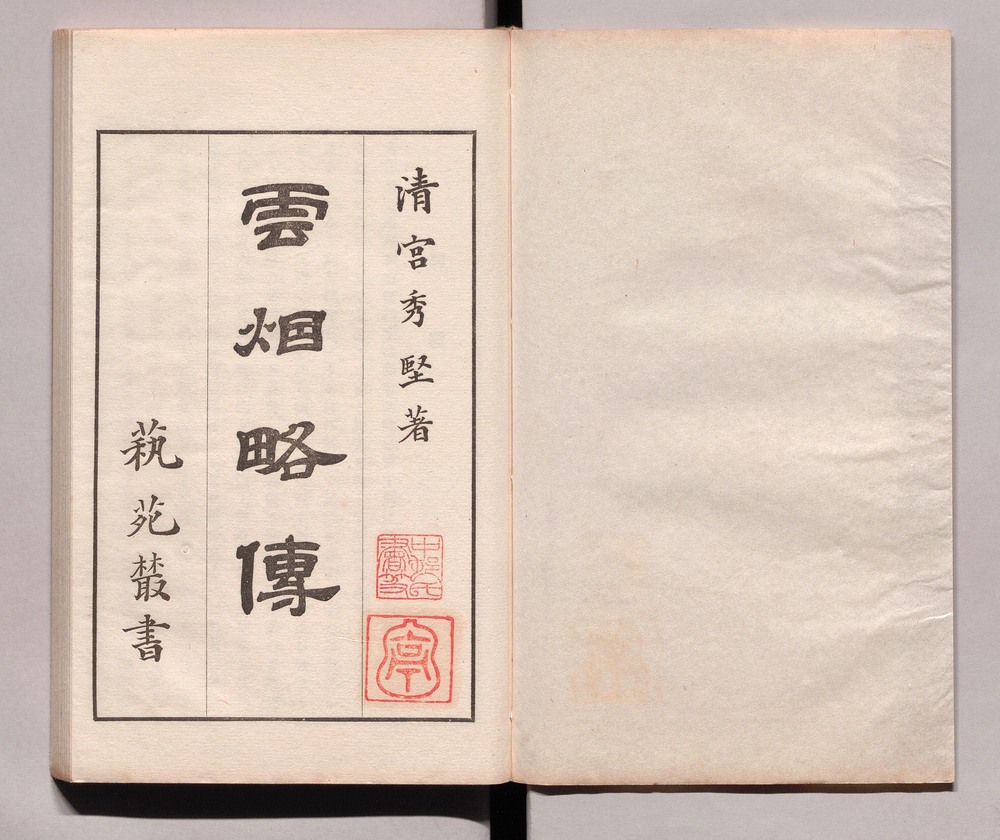 清宮秀堅著
雲烟略傳
蓺苑叢書
亭